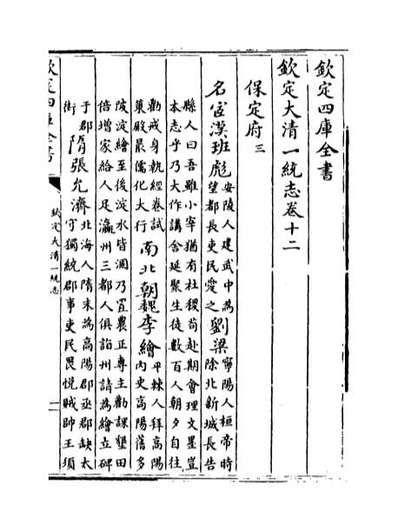 欽定四庫全書
欽定大清一統志卷十二
保定府三
名宦漢班彪安陵人建武中為望都長吏民愛之劉梁寧陽人桓帝時除北新城長告
縣人曰吾雖小宰猶有社稷苟赴期會理文墨豈
本志乎乃大作講舍延聚生徒數百人朝夕自往
勸戒身執經卷試策殿最儒化大行南北朝魏李繪平棘人拜高陽內史高陽舊多
陂淀繪至後淀水皆涸乃置農正專主勸課墾田
倍增家給人足瀛州三郡人俱詣州請為繪立碑
于郡街隋張允濟北海人隋末為高陽郡丞郡缺太守獨統郡事吏民畏悅賊帥王須
欽定四庫全書
欽定大清一統志